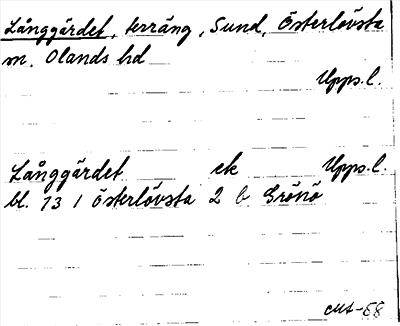 Långgärdet, terräng, Sund, Österlövsta
sn. Olands hd
Upps.l.
Långgärdet ek Upps.l.
bl. 13 I Österlövsta 2 b Grönö
-68